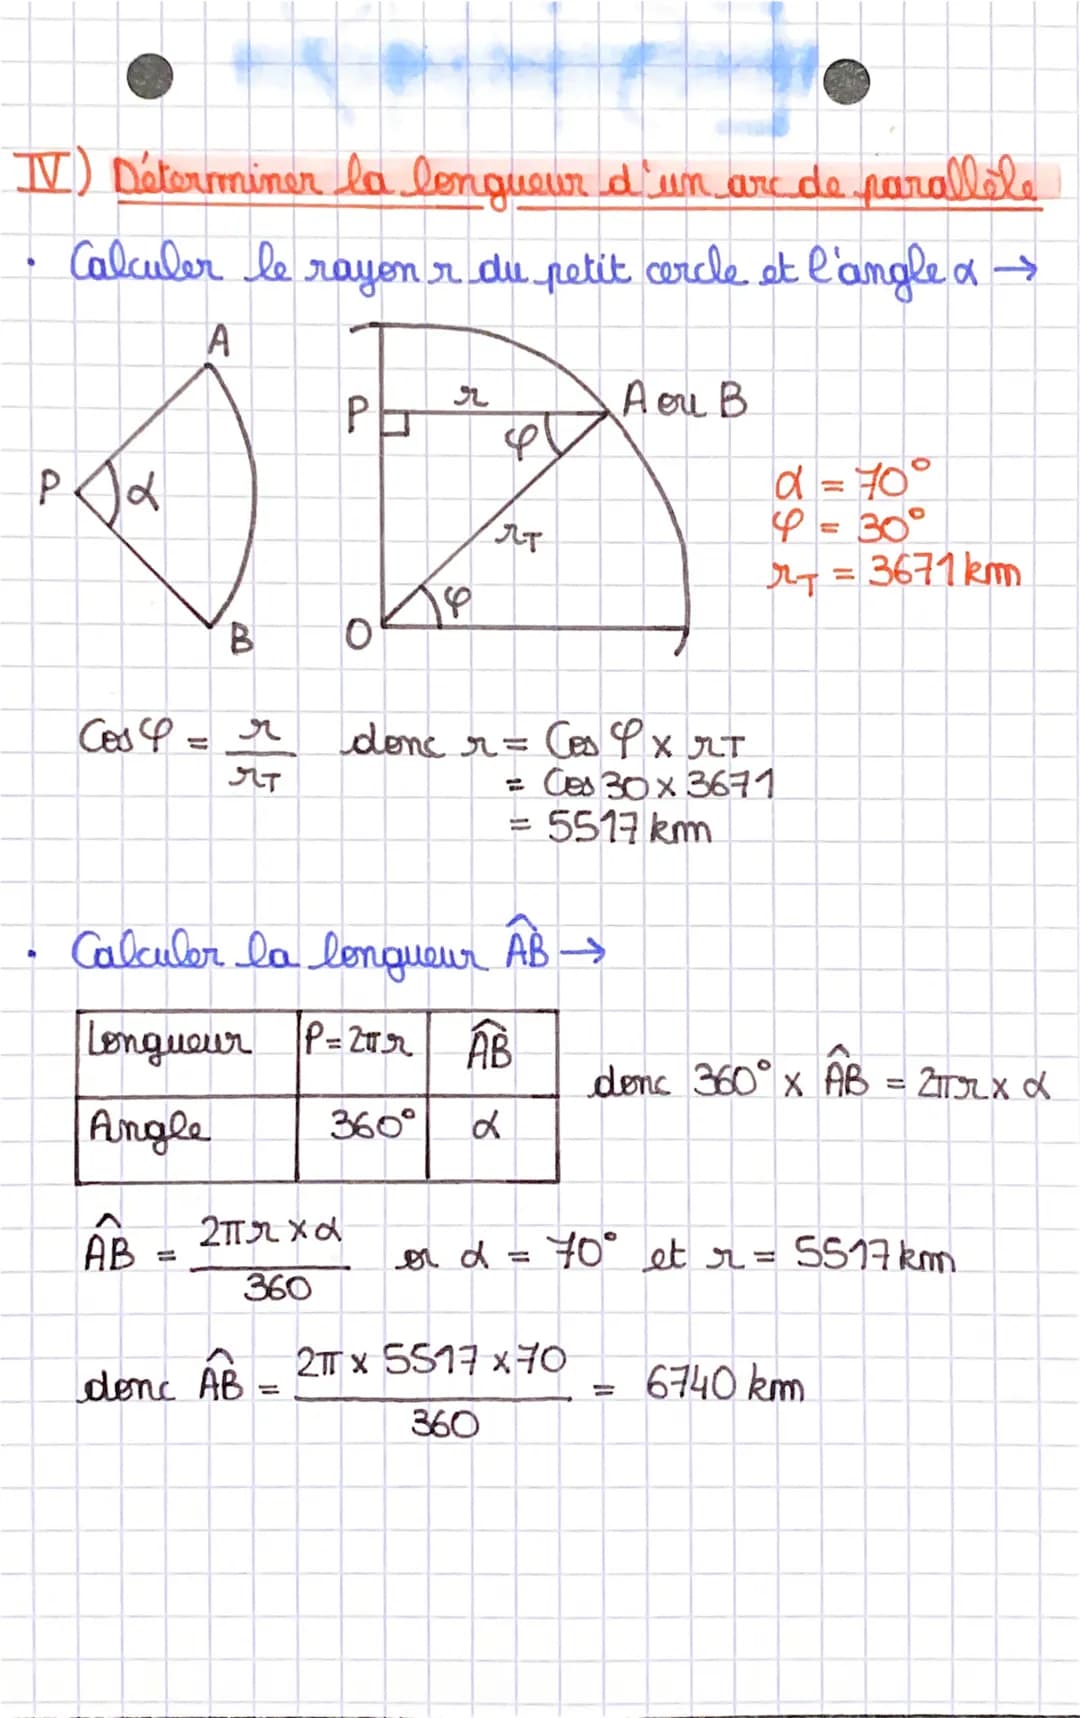 IV) Déterminer la longueur d'un arc de parallèle
• Calculer le rayon r du petit cercle et l'angle α →
A
P α
B
P r A ou B
φ
rT
φ
O
α = 70°
φ = 30°
rT = 3671 km
Cos φ = r/rT donc r = Cos φ x rT
= Cos 30 x 3671
= 5517 km
• Calculer la longueur ÂB →
Longueur P = 2πr ÂB
Angle 360° α
donc 360° x ÂB = 2πr x α
ÂB = 2πr x α / 360 or α = 70° et r = 5517 km
donc ÂB = 2π x 5517 x 70 / 360 = 6740 km